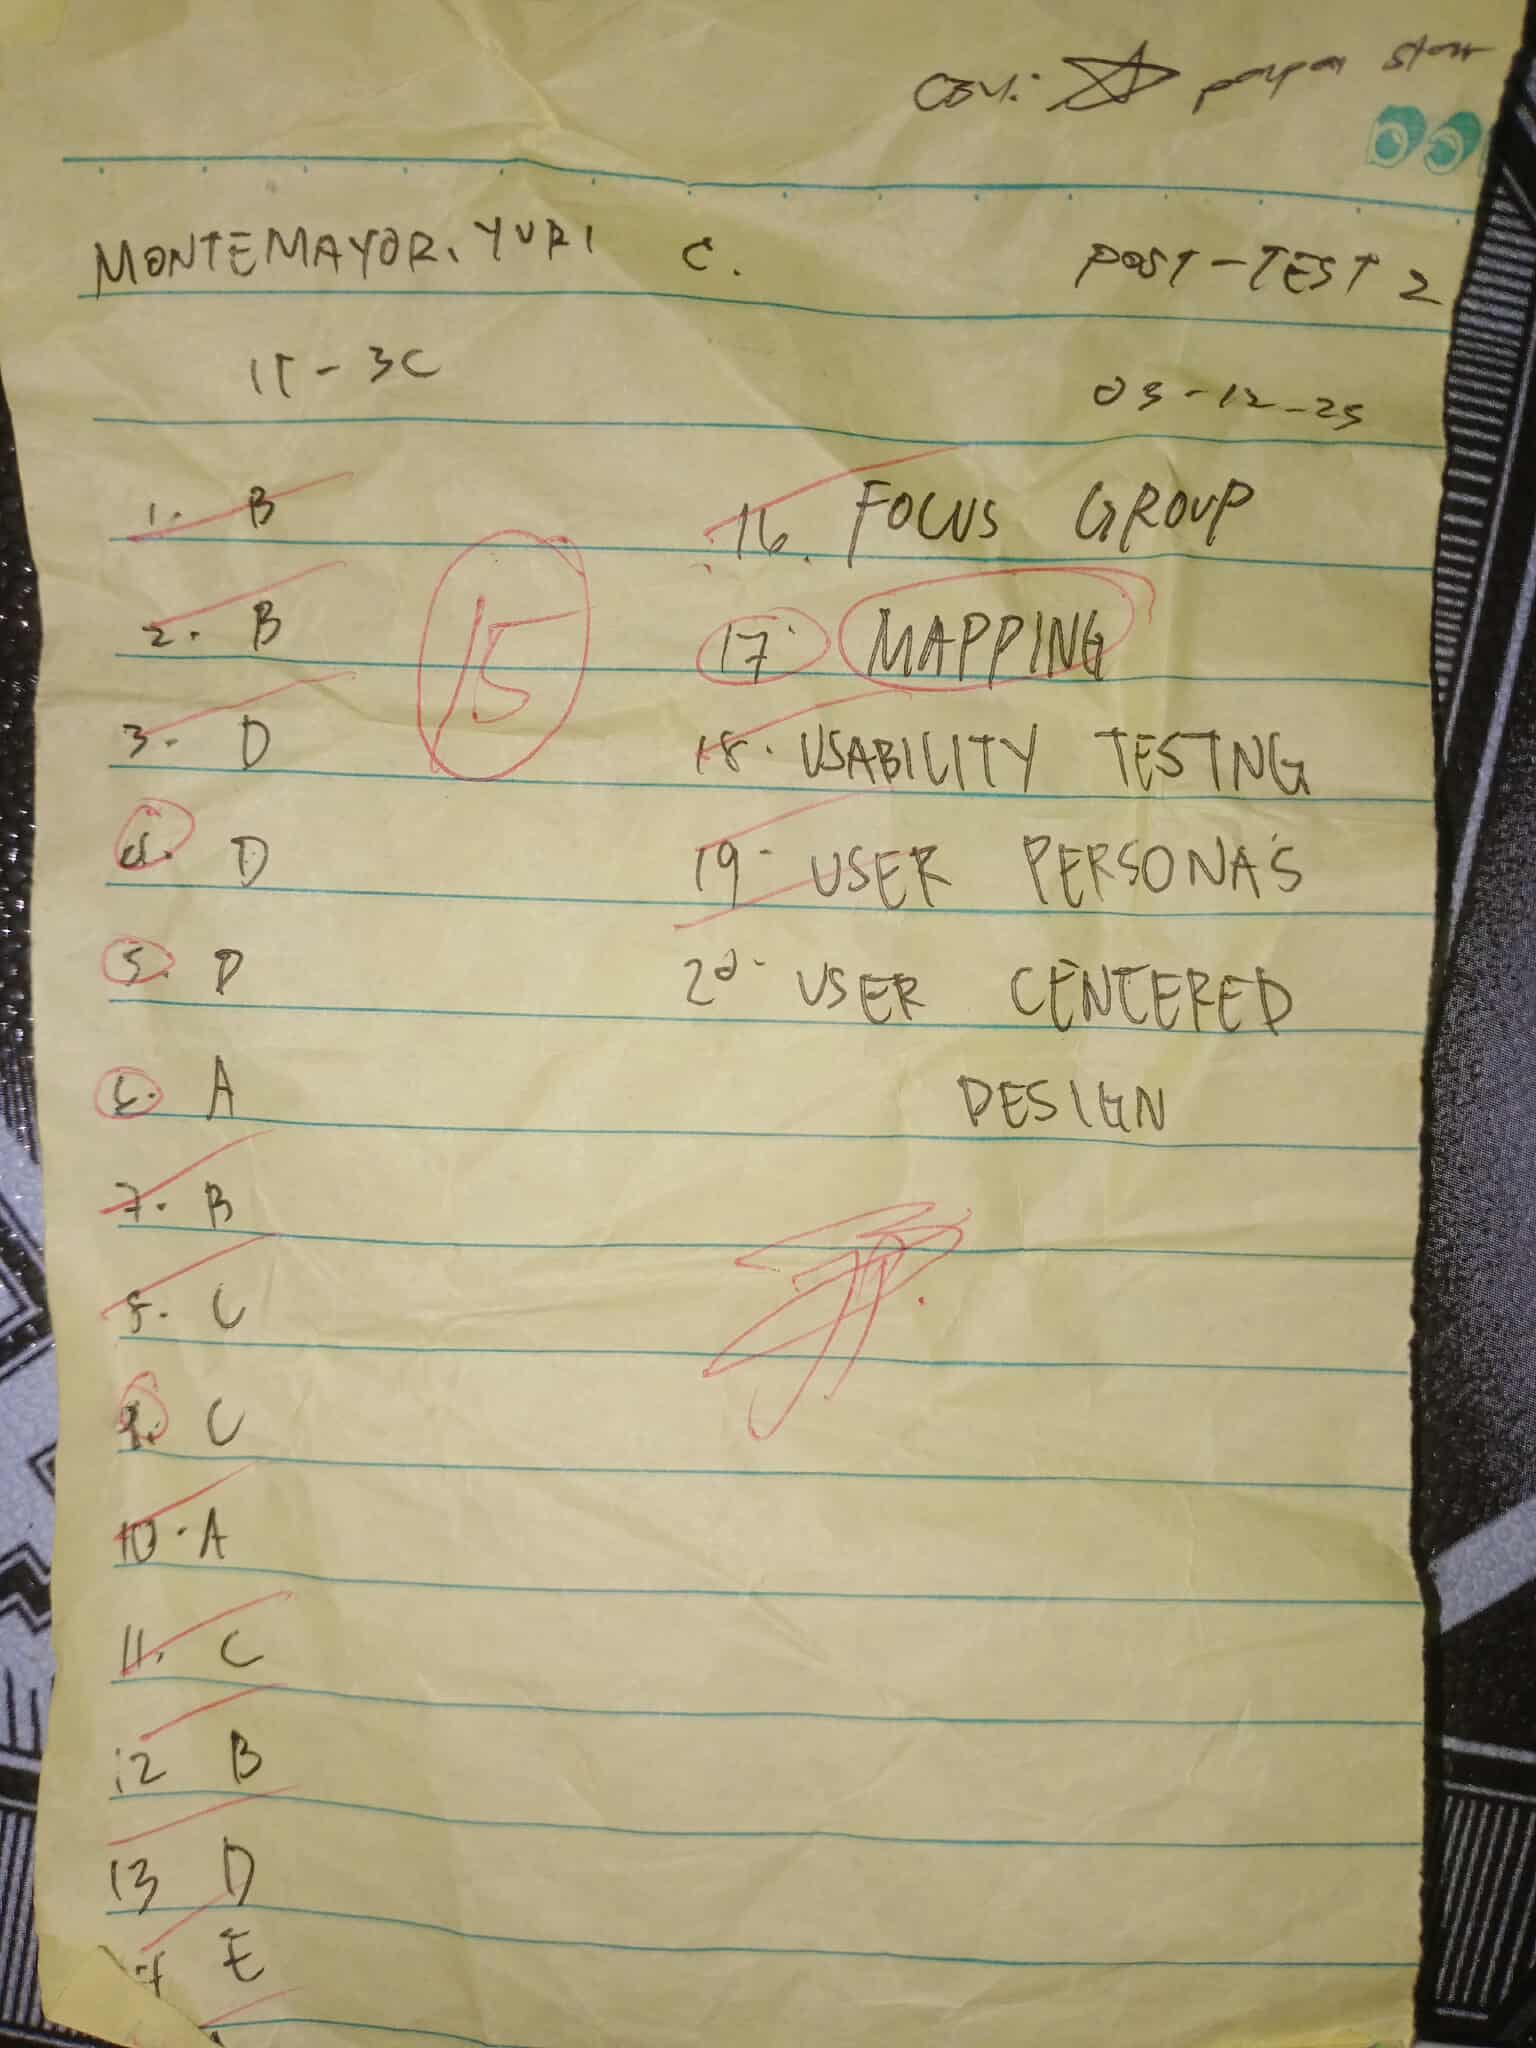 MONTEMAYOR, YURI C.
POST-TEST 2
IT-3C
03-12-25
15
1. B
2. B
3. D
4. D
5. D
6. A
7. B
8. C
9. C
10. A
11. C
12 B
13 D
14 E
16. FOCUS GROUP
17. MAPPING
18. USABILITY TESTNG
19. USER PERSONA'S
20. USER CENTERED
DESIGN